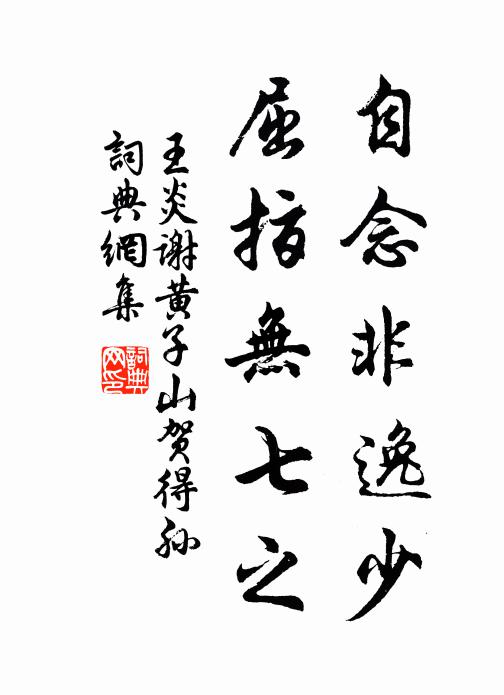 自念非逸少
屈指無七之
王炎谢黄子山贺得孙
詞典網集
詞典网印